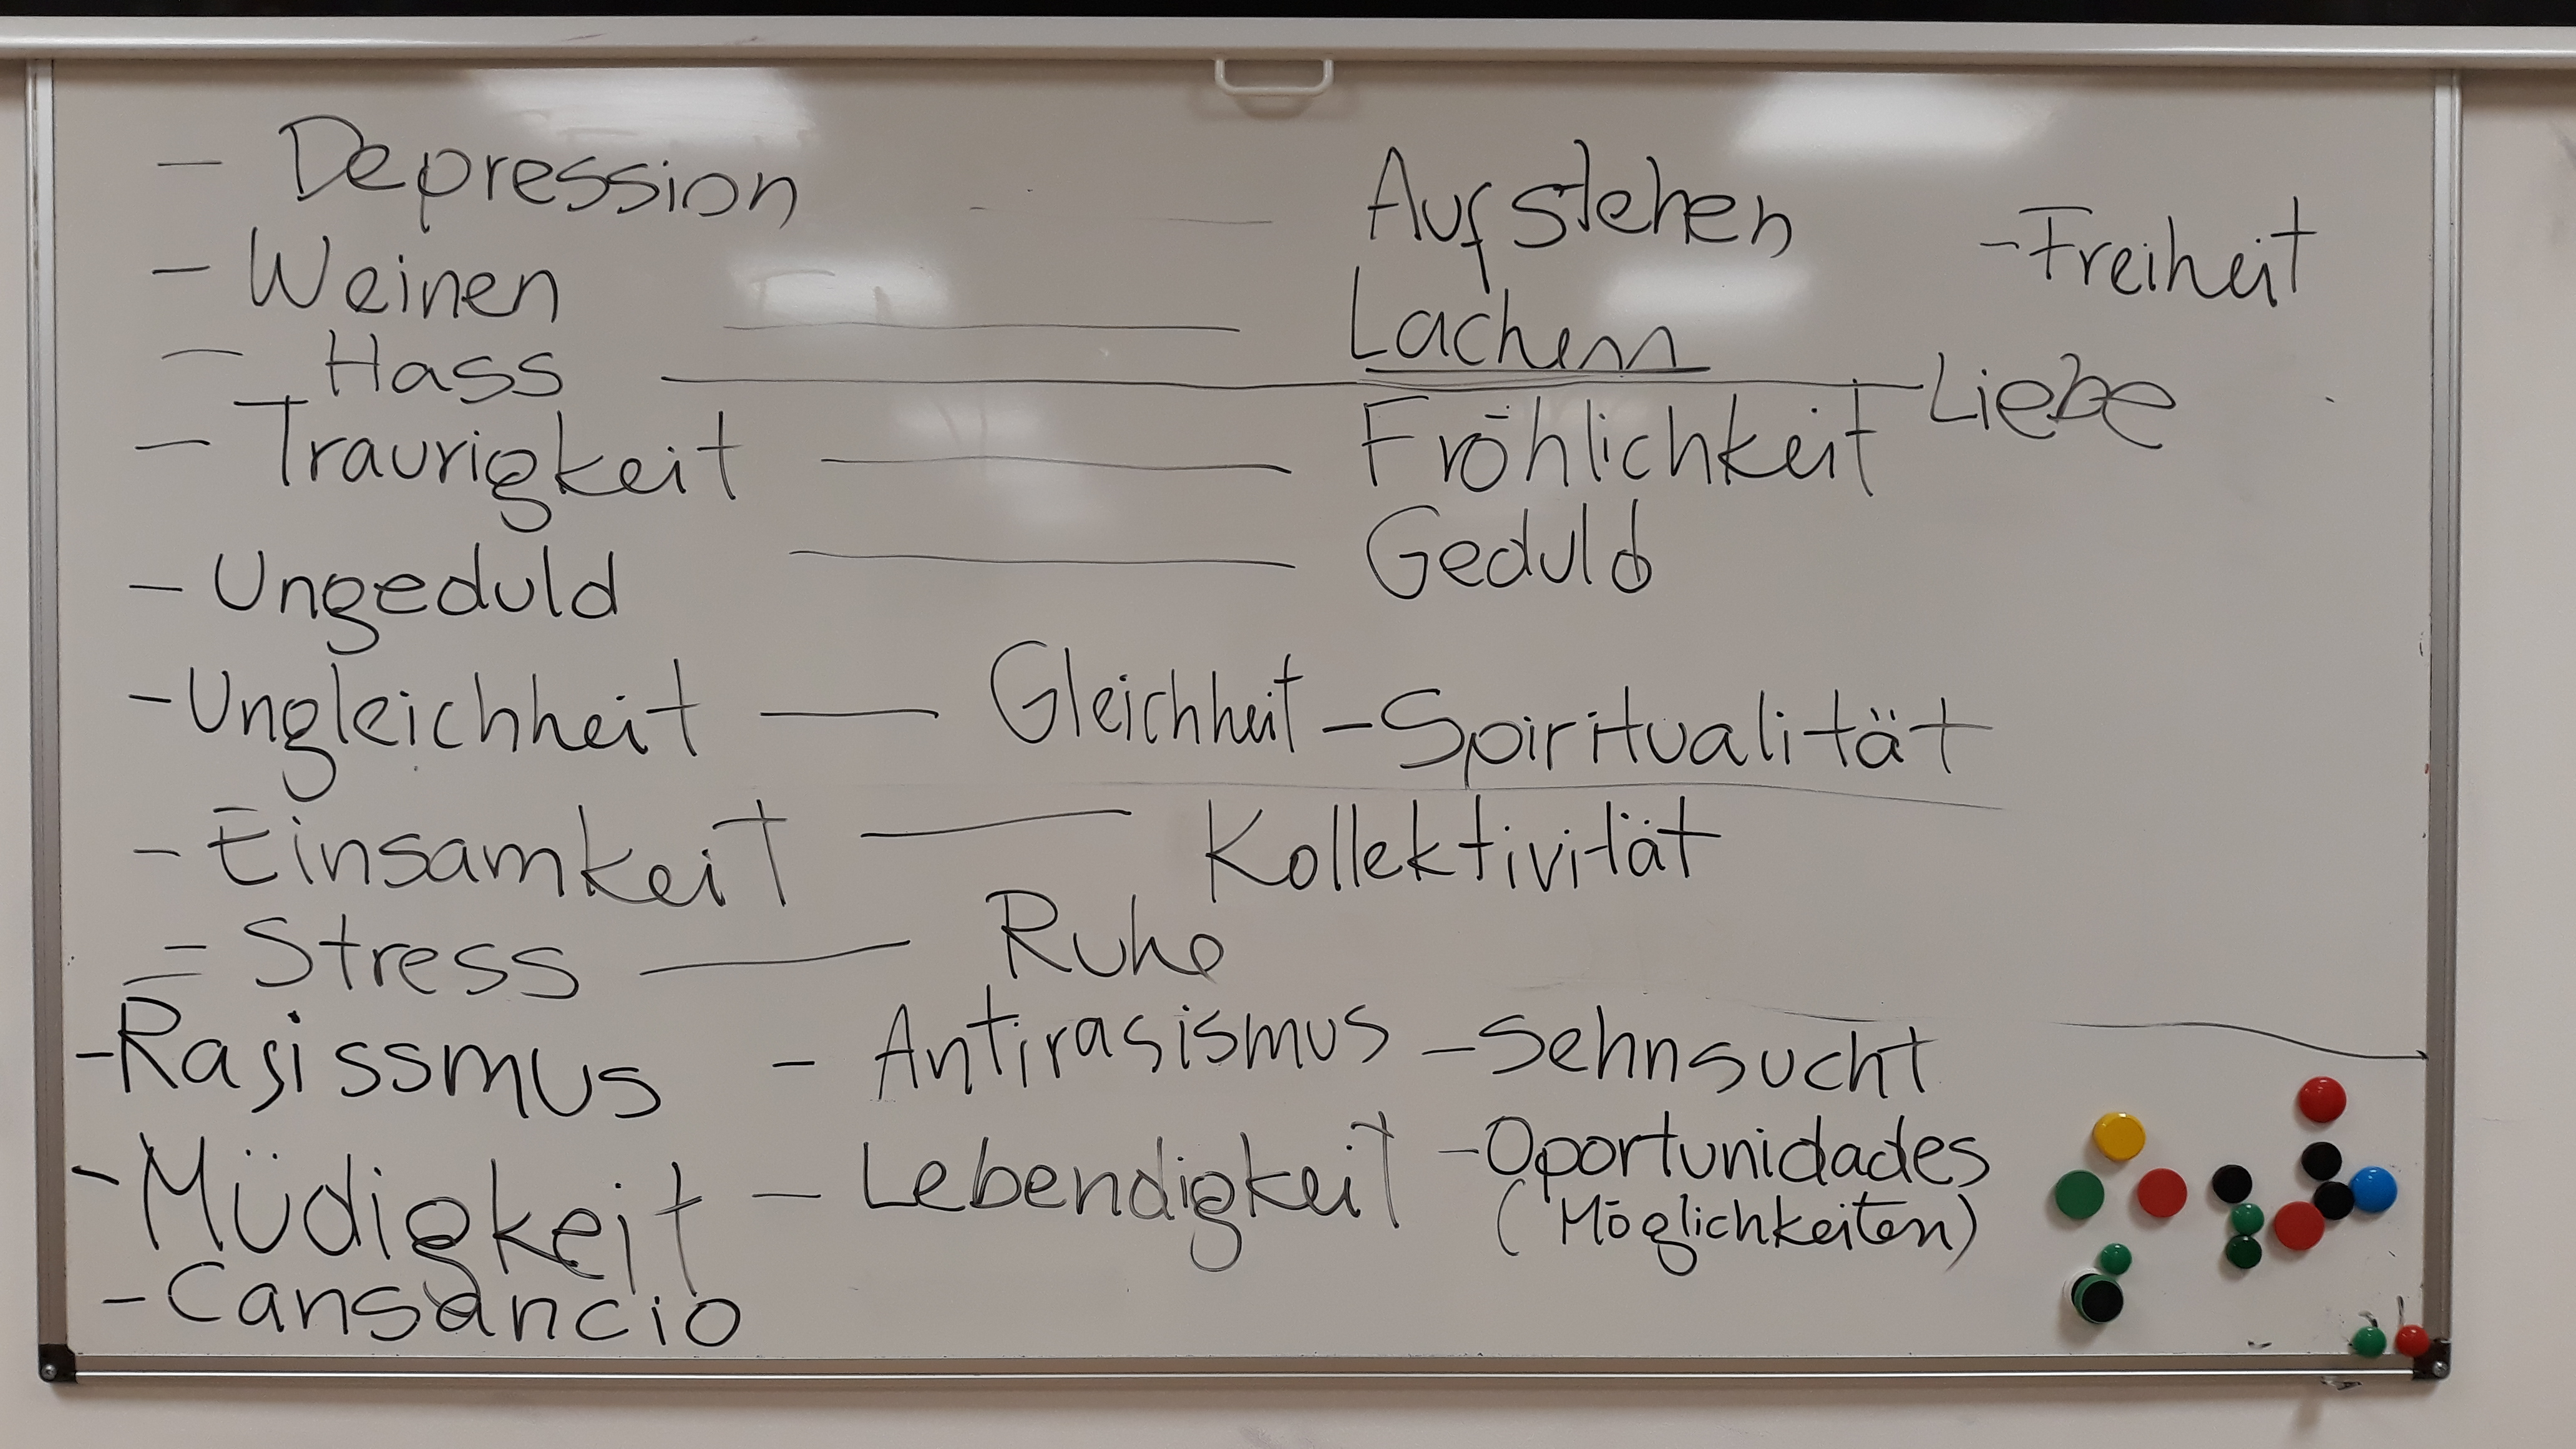 - Depression — Aufstehen - Freiheit
- Weinen — Lachen
- Hass — Liebe
- Traurigkeit — Fröhlichkeit
- Ungeduld — Geduld
- Ungleichheit — Gleichheit - Spiritualität
- Einsamkeit — Kollektivität
= Stress — Ruhe
- Rasissmus - Antirasismus - Sehnsucht
- Müdigkeit - Lebendigkeit - Oportunidades
(Möglichkeiten)
- Cansancio